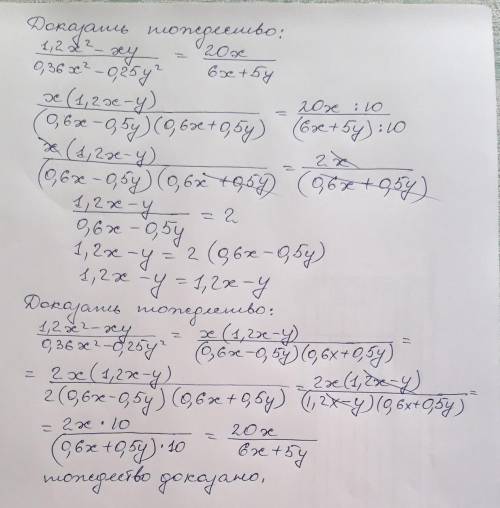 Доказать тождество:
(1,2x² − xy)/(0,36x² − 0,25y²) = 20x/(6x + 5y)
x(1,2x − y)/((0,6x − 0,5y)(0,6x + 0,5y)) = 20x : 10/((6x + 5y) : 10)
x(1,2x − y)/((0,6x − 0,5y)(0,6x + 0,5y)) = 2x/(0,6x + 0,5y)
(1,2x − y)/(0,6x − 0,5y) = 2
1,2x − y = 2(0,6x − 0,5y)
1,2x − y = 1,2x − y
Доказать тождество:
(1,2x² − xy)/(0,36x² − 0,25y²) = x(1,2x − y)/((0,6x − 0,5y)(0,6x + 0,5y)) =
= 2x(1,2x − y)/(2(0,6x − 0,5y)(0,6x + 0,5y)) = 2x(1,2x − y)/((1,2x − y)(0,6x + 0,5y)) =
= 2x · 10/((0,6x + 0,5y) · 10) = 20x/(6x + 5y)
тождество доказано.